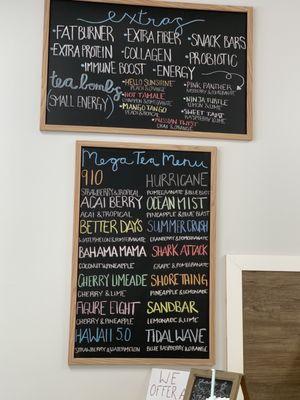 extras
•FAT BURNER •EXTRA FIBER •SNACK BARS
•EXTRA PROTEIN •COLLAGEN •PROBIOTIC
•IMMUNE BOOST •ENERGY
tea bombs
(SMALL ENERGY)
•HELLO SUNSHINE
PEACH & ORANGE
•HOT TAMALE
•MANGO TANGO
PEACH & TROPICAL
•RUSSIAN TWIST
•PINK PANTHER
•NINJA TURTLE
LEMON & ORANGE
•SWEET TART
Mega Tea Menu
910
STRAWBERRY & TROPICAL
ACAI BERRY
ACAI & TROPICAL
BETTER DAYS
WATERMELON & POMEGRANATE
BAHAMA MAMA
COCONUT & PINEAPPLE
CHERRY LIMEADE
CHERRY & LIME
FIGURE EIGHT
CHERRY & PINEAPPLE
HAWAII 5.0
STRAWBERRY & WATERMELON
HURRICANE
POMEGRANATE & BLUE BLAST
OCEAN MIST
PINEAPPLE & BLUE BLAST
SUMMER CRUSH
CRANBERRY & POMEGRANATE
SHARK ATTACK
GRAPE & POMEGRANATE
SHORE THING
PINEAPPLE & LEMONADE
SANDBAR
LEMONADE & LIME
TIDAL WAVE
BLUE RASPBERRY & ORANGE
WE
OFFER A